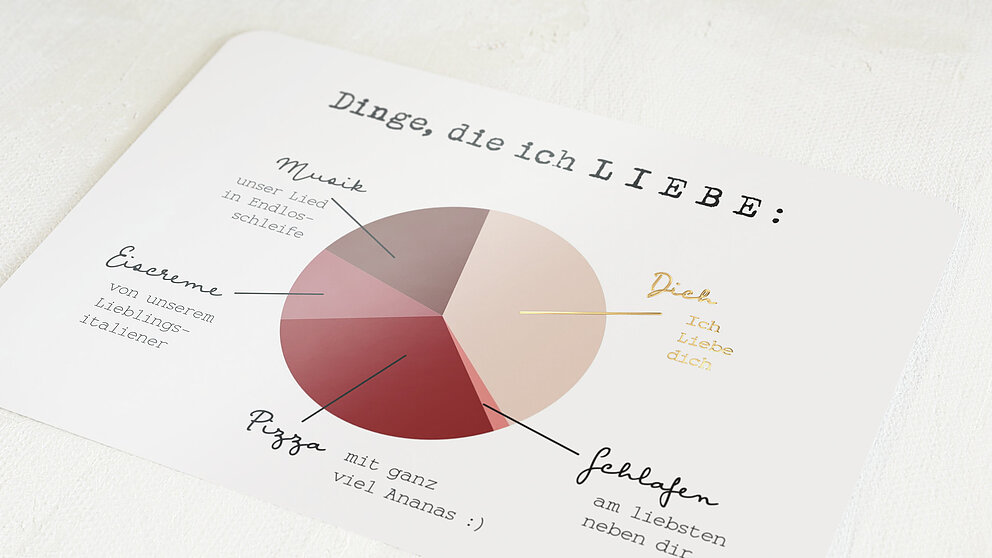 Dinge, die ich LIEBE:
Musik
unser Lied
in Endlos-
schleife
Eiscreme
von unserem
Lieblings-
italiener
Dich
Ich
Liebe
dich
Pizza
mit ganz
viel Ananas :)
Schlafen
am liebsten
neben dir